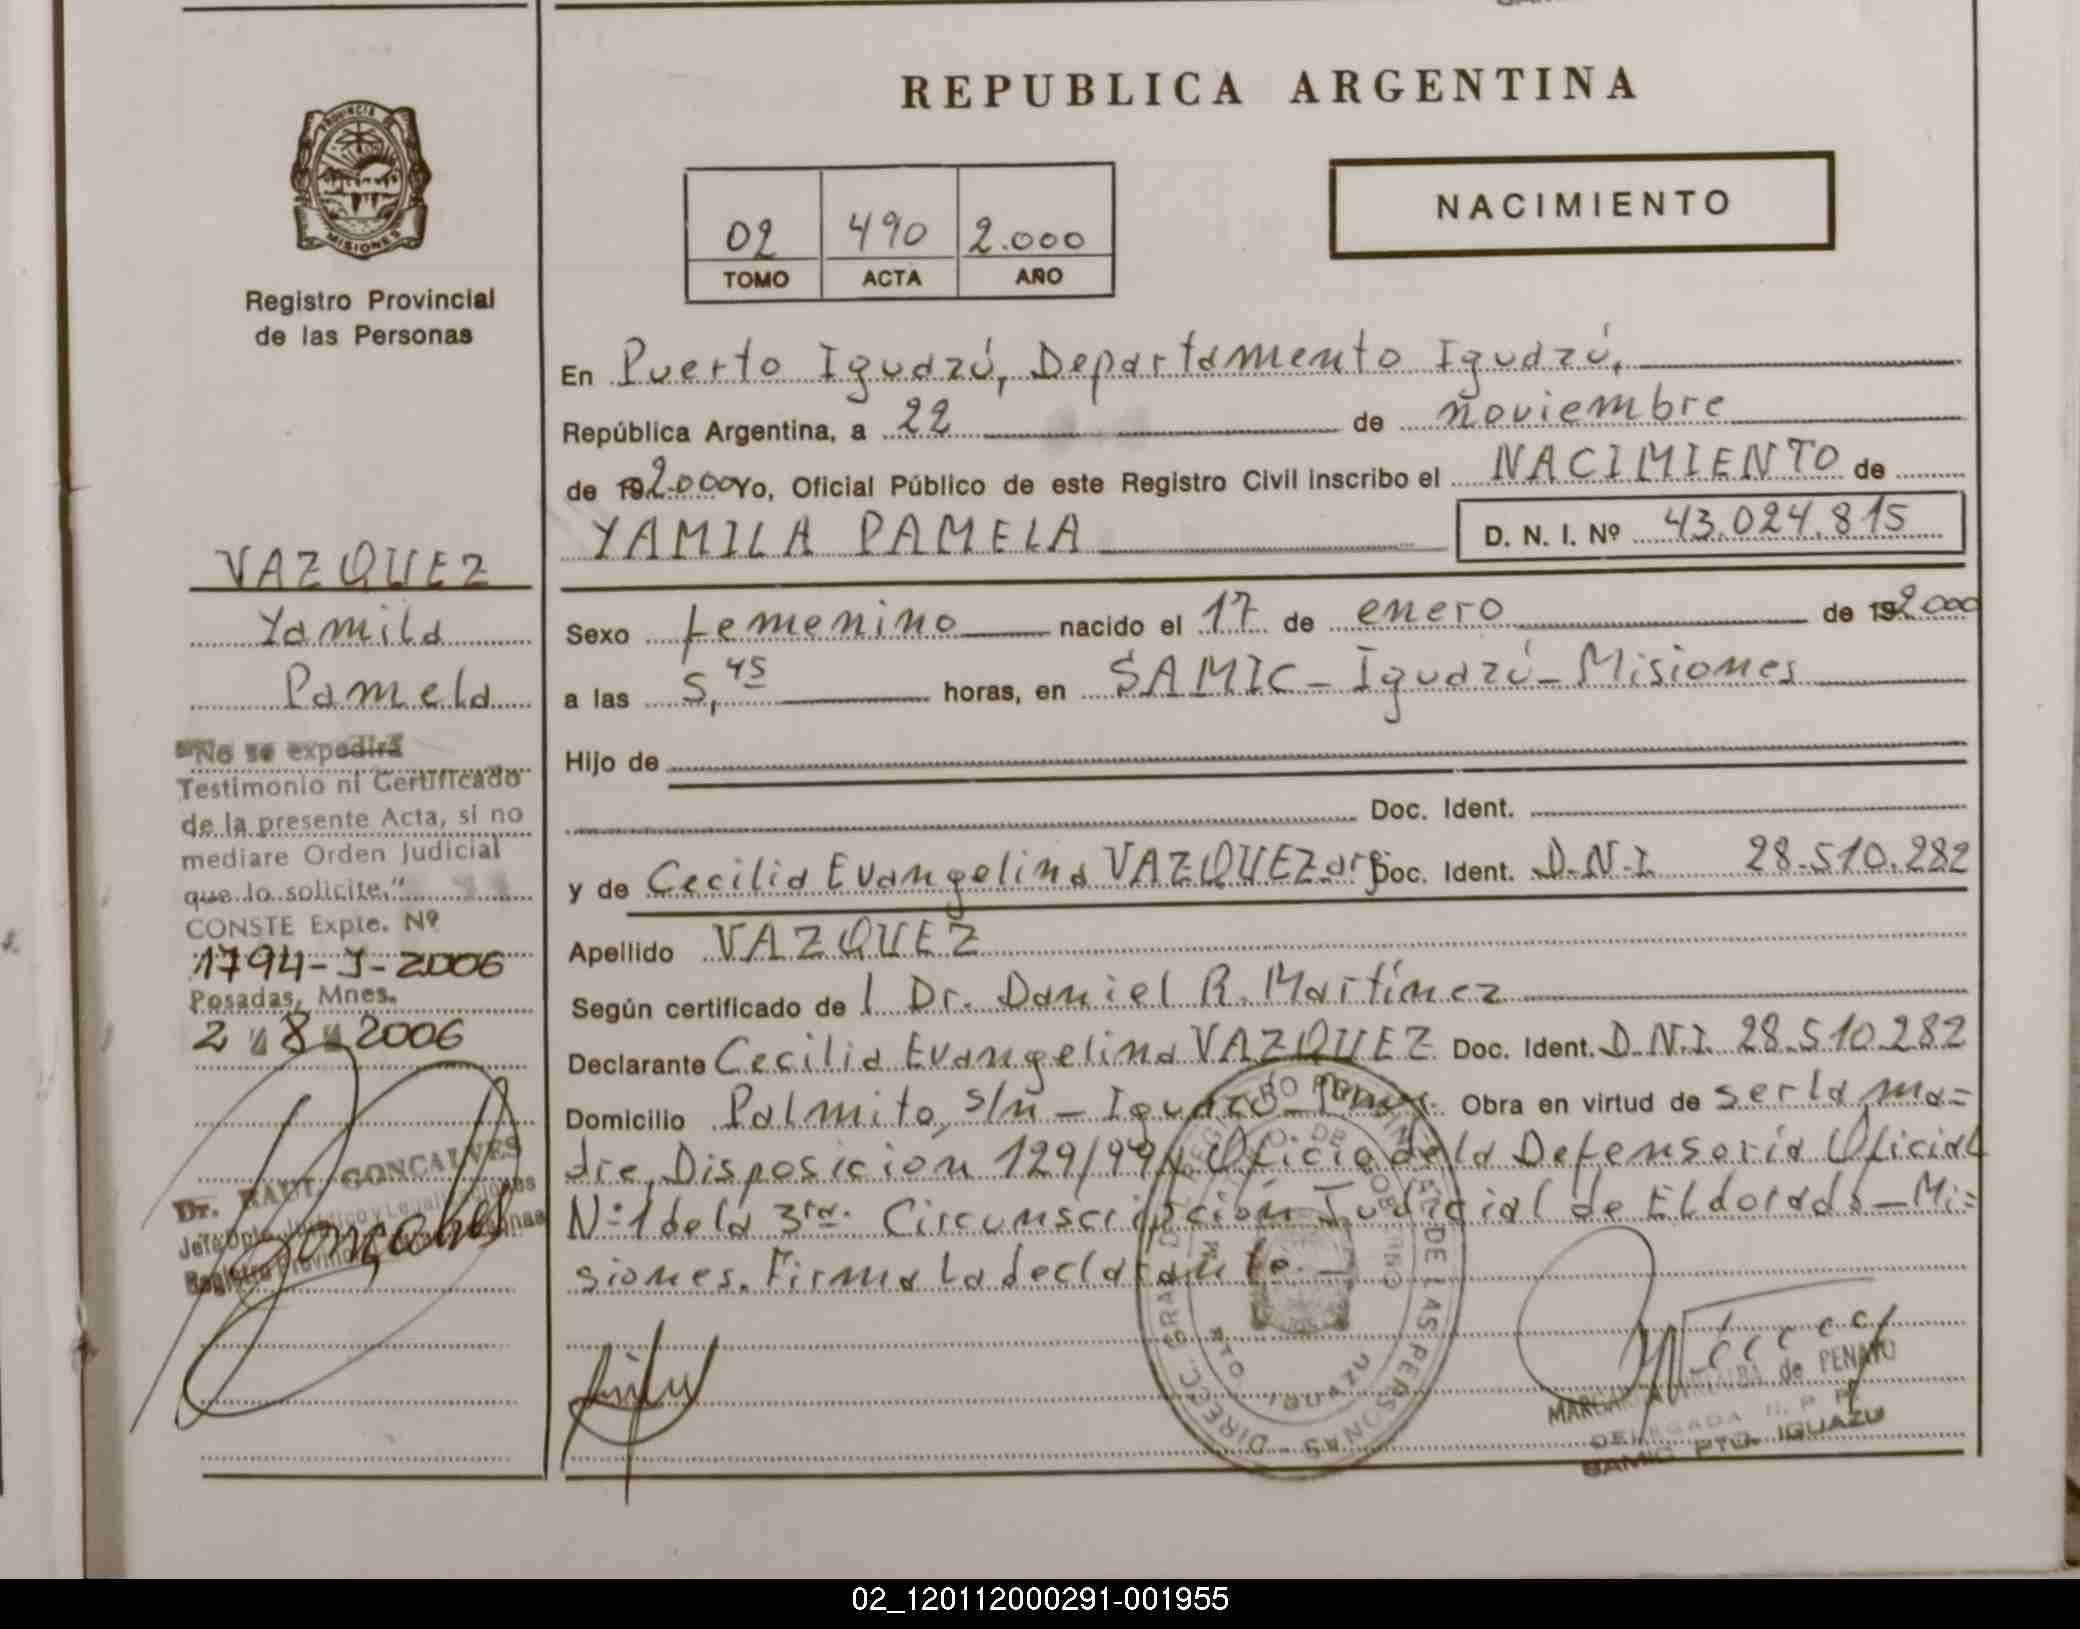 REPUBLICA ARGENTINA
PROVINCIA DE
MISIONES
Registro Provincial
de las Personas
02 490 2.000
TOMO ACTA AÑO
NACIMIENTO
En Puerto Iguazú, Departamento Iguazú,
República Argentina, a 22 de noviembre
de 192.000 Yo, Oficial Público de este Registro Civil inscribo el NACIMIENTO de
YAMILA PAMELA D. N. I. Nº 43.024.815
Sexo femenino nacido el 17 de enero de 192000
a las 5,45 horas, en SAMIC - Iguazú - Misiones
Hijo de
Doc. Ident.
y de Cecilia Evangelina VAZQUEZ arg Doc. Ident. D.N.I. 28.510.282
Apellido VAZQUEZ
Según certificado de l Dr. Daniel R. Martínez
Declarante Cecilia Evangelina VAZQUEZ Doc. Ident. D.N.I. 28.510.282
Domicilio Palmito, s/n - Iguazú - Obra en virtud de ser la ma=
dre, Disposición 129/99, Oficio de la Defensoría Oficial
Nº 1 de la 3ra. Circunscripción Judicial de Eldorado - Mi=
siones. Firma la declarante. -
VAZQUEZ
Yamila
Pamela
"No se expedirá
Testimonio ni Certificado
de la presente Acta, si no
mediare Orden Judicial
que lo solicite."
CONSTE Expte. Nº
1794-J-2006
Posadas, Mnes.
2 8 2006
Dr. RAUL GONCALVES
Jefe Dpto. Jurídico y Legalizaciones
Registro Provincial de las Personas
DIREC. GRAL DEL REGISTRO PROVINCIAL DE LAS PERSONAS
M. DE GOBIERNO
PTO. IGUAZU
de PENAYO
DELEGADA R. P. P.
SAMIC PTO. IGUAZU
02_120112000291-001955